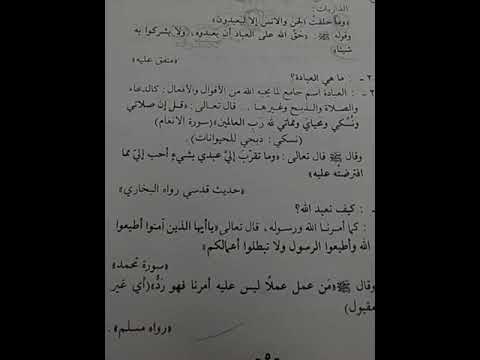 الذاريات:
«وما خلقتُ الجن والانس إلا ليعبدون»
وقوله ﷺ: «حَقُّ الله على العباد أن يعبدوه، ولا يشركوا به
شيئا»
«متفق عليه»
٢ - : ما هي العبادة؟
٢ - : العبادة اسم جامع لما يحبه الله من الأقوال والأفعال: كالدعاء
والصلاة والذبح وغيرها ... قال تعالى: «قل إن صلاتي
ونُسُكي ومحيايَ ومماتي لله رَب العالمين» (سورة الانعام)
(نسكي: ذبحي للحيوانات).
وقال ﷺ قال تعالى: «وما تقرّبَ إليَّ عبدي بشيءٍ أحب إليّ مما
افترضتُه عليه»
«حديث قدسي رواه البخاري»
: كيف نعبد الله؟
: كما أمرنا الله ورسوله، قال تعالى «ياأيها الذين آمنوا أطيعوا
الله وأطيعوا الرسول ولا تبطلوا أعمالكم»
«سورة محمد»
وقال ﷺ «مَن عمل عملًا ليس عليه أمرنا فهو رَدٌّ» (أي غير
مقبول)
«رواه مسلم».
- ٥ -